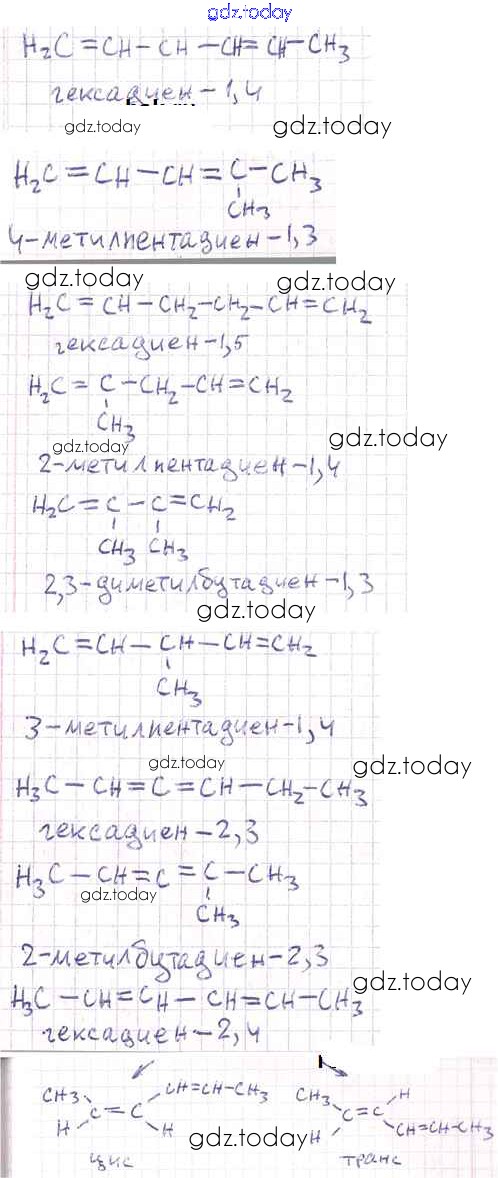 gdz.today
H₂C=CH-CH-CH=CH-CH₃
гексадиен-1,4
gdz.today gdz.today
H₂C=CH-CH=C-CH₃
CH₃
4-метилпентадиен-1,3
gdz.today gdz.today
H₂C=CH-CH₂-CH₂-CH=CH₂
гексадиен-1,5
H₂C=C-CH₂-CH=CH₂
CH₃
gdz.today gdz.today
2-метилпентадиен-1,4
H₂C=C-C=CH₂
CH₃ CH₃
2,3-диметилбутадиен-1,3
gdz.today
H₂C=CH-CH-CH=CH₂
CH₃
3-метилпентадиен-1,4
gdz.today gdz.today
H₃C-CH=C=CH-CH₂-CH₃
гексадиен-2,3
H₃C-CH=C=C-CH₃
gdz.today
CH₃
2-метилбутадиен-2,3
gdz.today
H₃C-CH=CH-CH=CH-CH₃
гексадиен-2,4
CH₃ CH=CH-CH₃ CH₃ H
C=C C=C
H H H CH=CH-CH₃
gdz.today
цис транс